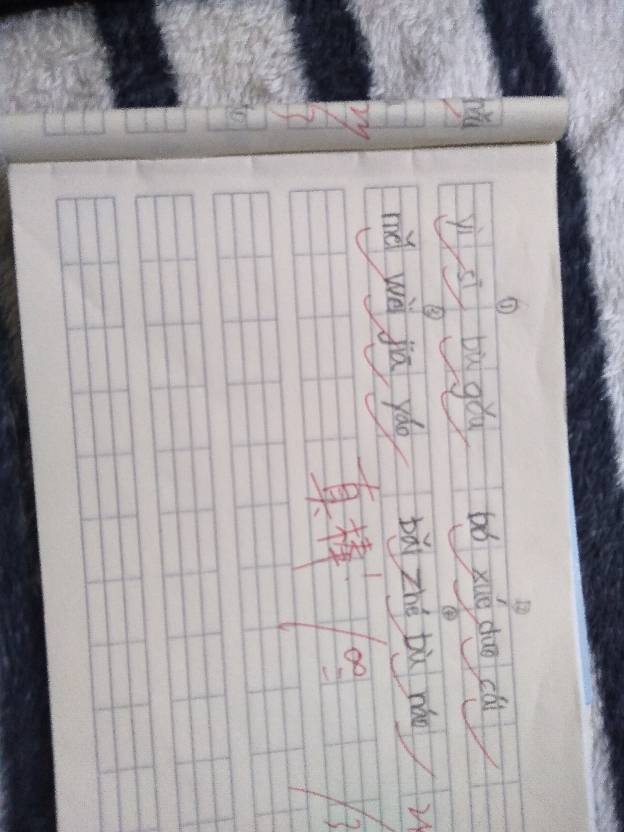 ① yì sī bù gǒu ② bó xué duō cái
③ měi wèi jiā yáo ④ bǎi zhé bù náo
真棒! 8: